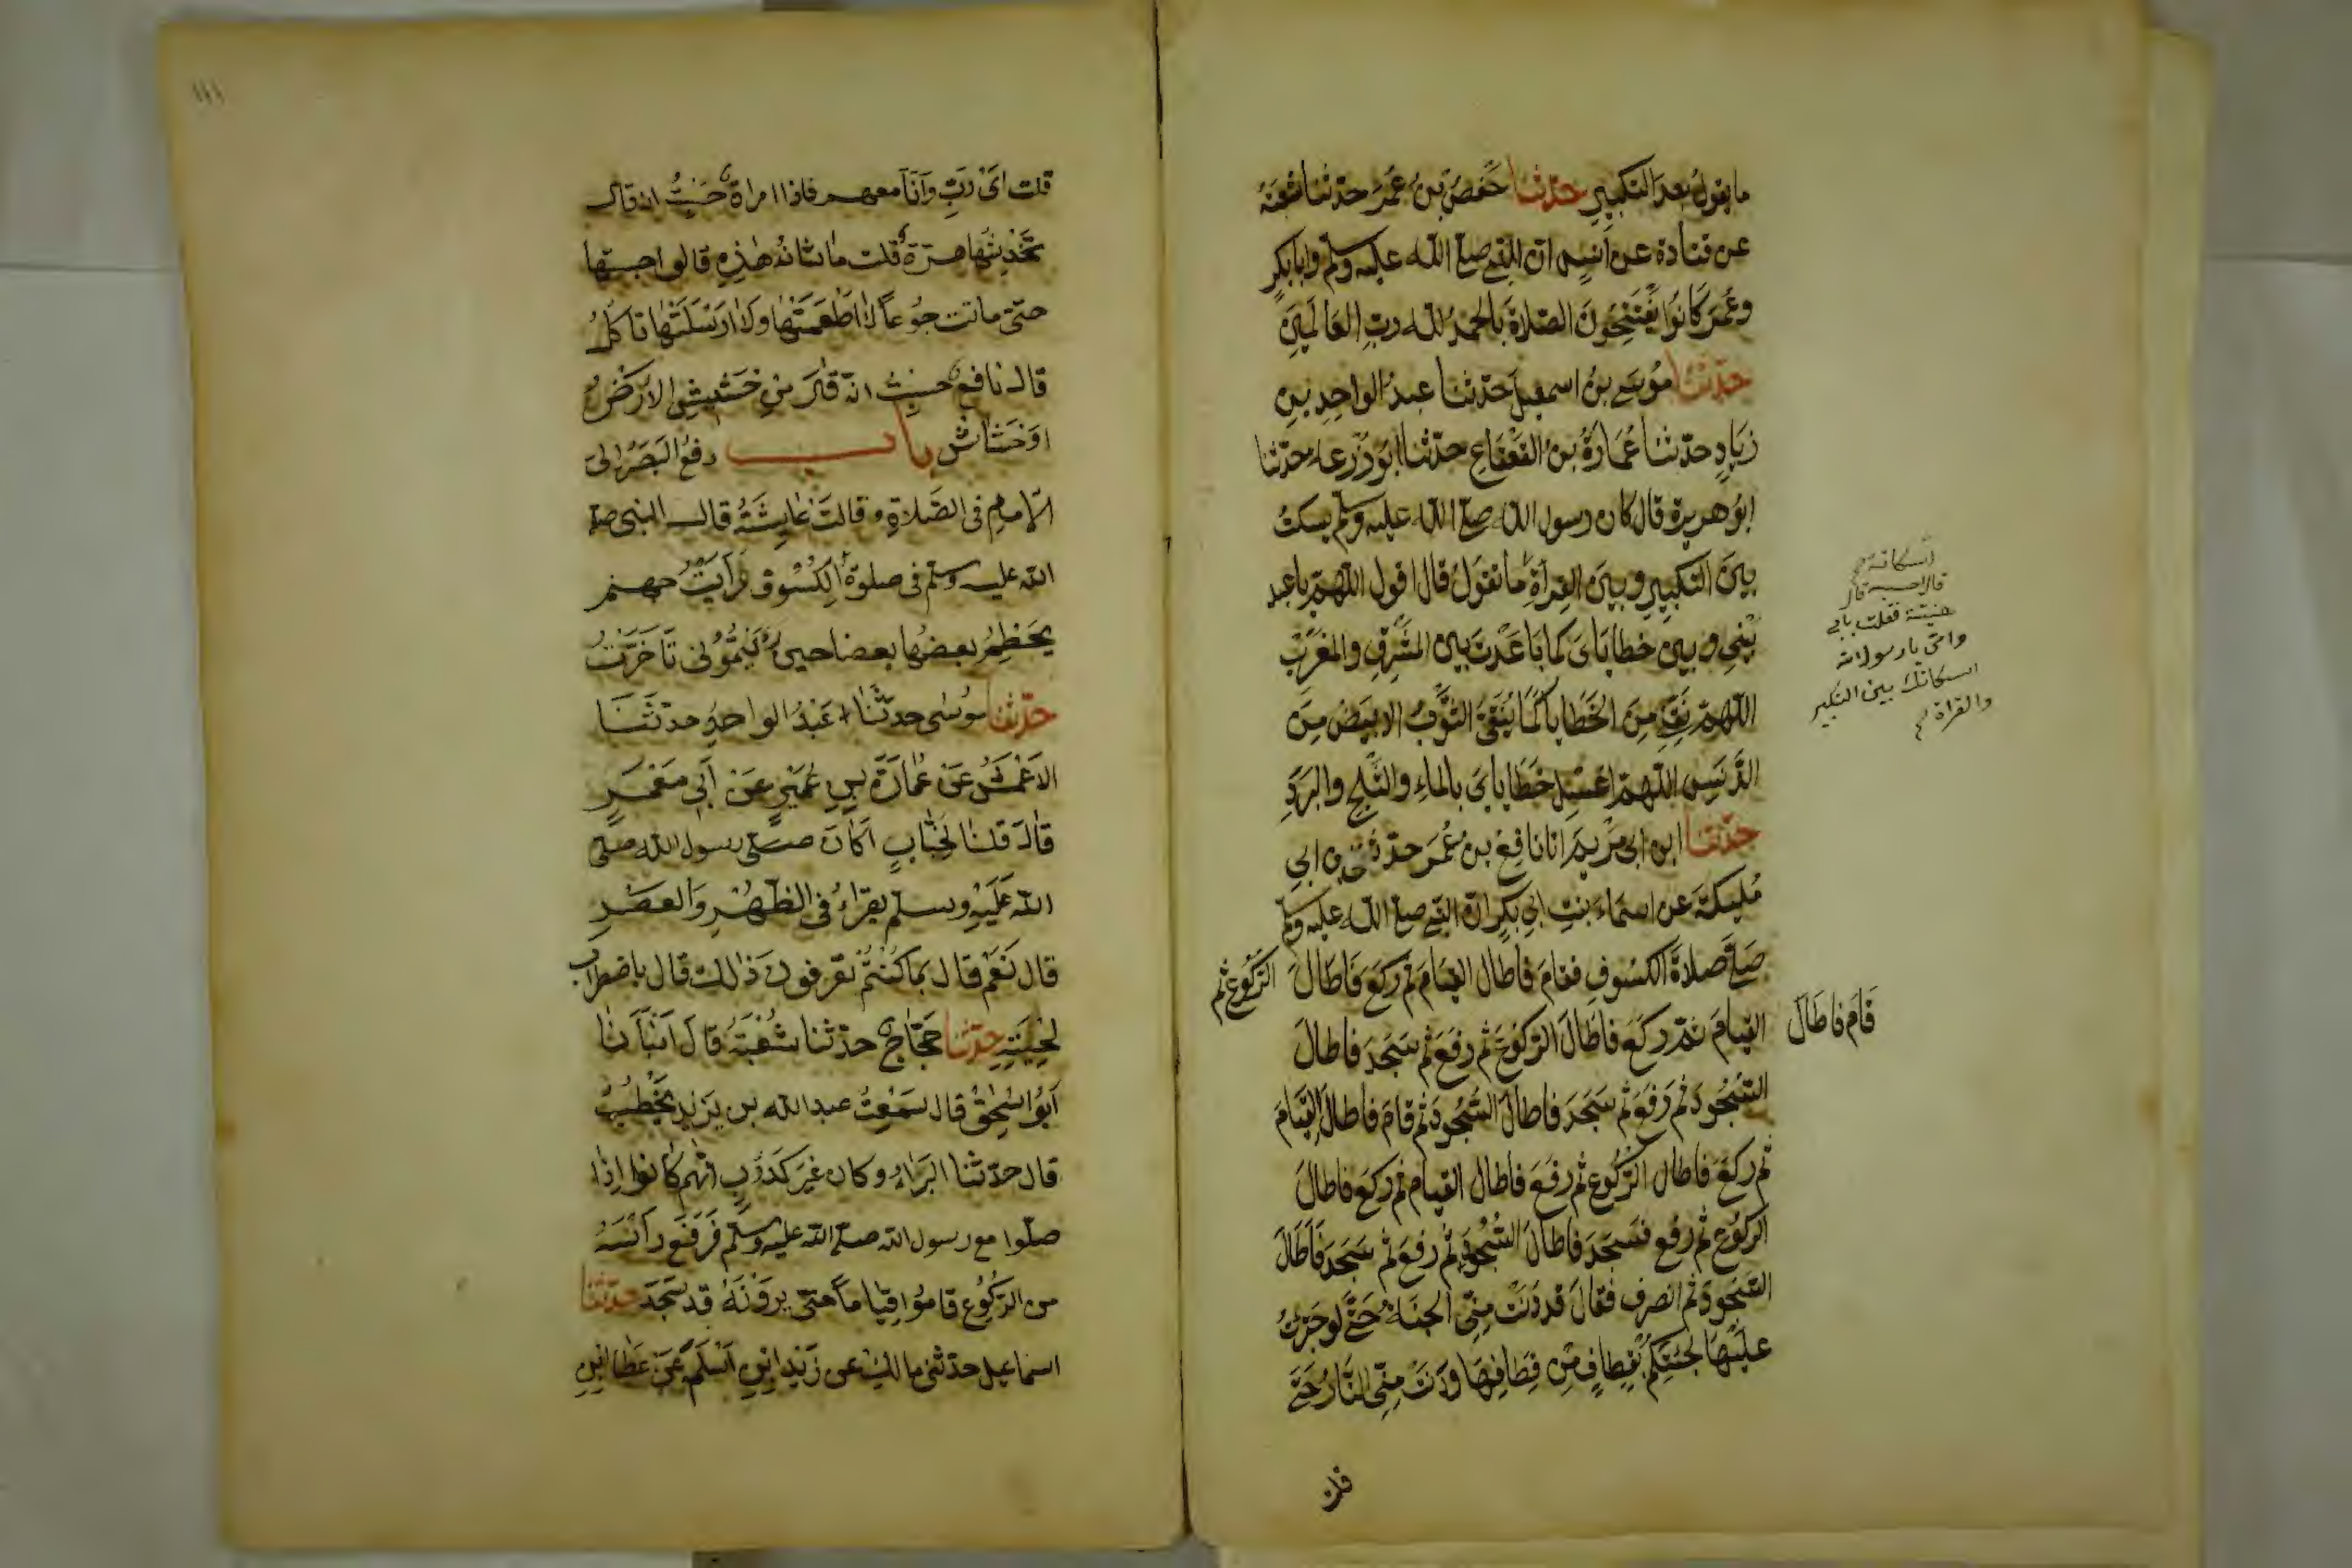 ما يقول بعد التكبير حدثنا حفص بن عمر حدثنا شعبة
عن قتادة عن انس ان النبي صلى الله عليه وسلم وابا بكر
وعمر كانوا يفتتحون الصلاة بالحمد لله رب العالمين
حدثنا موسى بن اسمعيل حدثنا عبد الواحد بن
زياد حدثنا عمارة بن القعقاع حدثنا ابو زرعة حدثنا
ابو هريرة قال كان رسول الله صلى الله عليه وسلم يسكت
بين التكبير وبين القراة ما تقول قال اقول اللهم باعد
بيني وبين خطاياى كما باعدت بين المشرق والمغرب
اللهم نقني من الخطايا كما ينقى الثوب الابيض من
الدنس اللهم اغسل خطاياى بالماء والثلج والبرد
حدثنا ابن ابى مريم انا نافع بن عمر ابن ابي
مليكة عن اسماء بنت ابي بكر ان النبي صلى الله عليه وسلم
صلى صلاة الكسوف فقام فاطال القيام ثم ركع فاطال الركوع ثم
قام فاطال القيام ثم ركع فاطال الركوع ثم رفع ثم سجد فاطال
السجود ثم رفع ثم سجد فاطال السجود ثم قام فاطال القيام
ثم ركع فاطال الركوع ثم رفع فاطال القيام ثم ركع فاطال
الركوع ثم رفع فسجد فاطال السجود ثم رفع ثم سجد فاطال
السجود ثم انصرف فقال قد دنت مني الجنة حتى لو اجترات
عليها لجئتكم بقطاف من قطافها ودنت مني النار حتى
قلت
اسكاتة
قال احسبه قال
هنية فقلت بابي
وامى يا رسول الله
اسكاتك بين التكبير
والقراة
١١١
قلت اى رب وانا معهم فاذا امراة حسبت انه قال
تخدشها هرة قلت ما شان هذه قالوا حبستها
حتى ماتت جوعا لا اطعمتها ولا ارسلتها تاكل
قال نافع حسبت انه قال من خشيش الارض
او خشاش باب رفع البصر الى
الامام فى الصلاة وقالت عايشة قال النبى صلى
الله عليه وسلم فى صلوة الكسوف فرايت جهنم
يحطم بعضها بعضا حين رايتمونى تاخرت
حدثنا موسى حدثنا عبد الواحد حدثنا
الاعمش عن عمارة بن عمير عن ابي معمر
قال قلنا لخباب اكان صلى رسول الله صلى
الله عليه وسلم يقراء فى الظهر والعصر
قال نعم قال بما كنتم تعرفون ذالك قال باضطراب
لحيته حدثنا حجاج حدثنا شعبة قال انبانا
ابو اسحق قال سمعت عبد الله بن يزيد يخطب
قال حدثنا البراء وكان غير كذوب انهم كانوا اذا
صلوا مع رسول الله صلى الله عليه وسلم فرفع راسه
من الركوع قاموا قياما حتى يرونه قد سجد حدثنا
اسماعيل حدثنى مالك عن زيد ابن اسلم عن عطا ابن